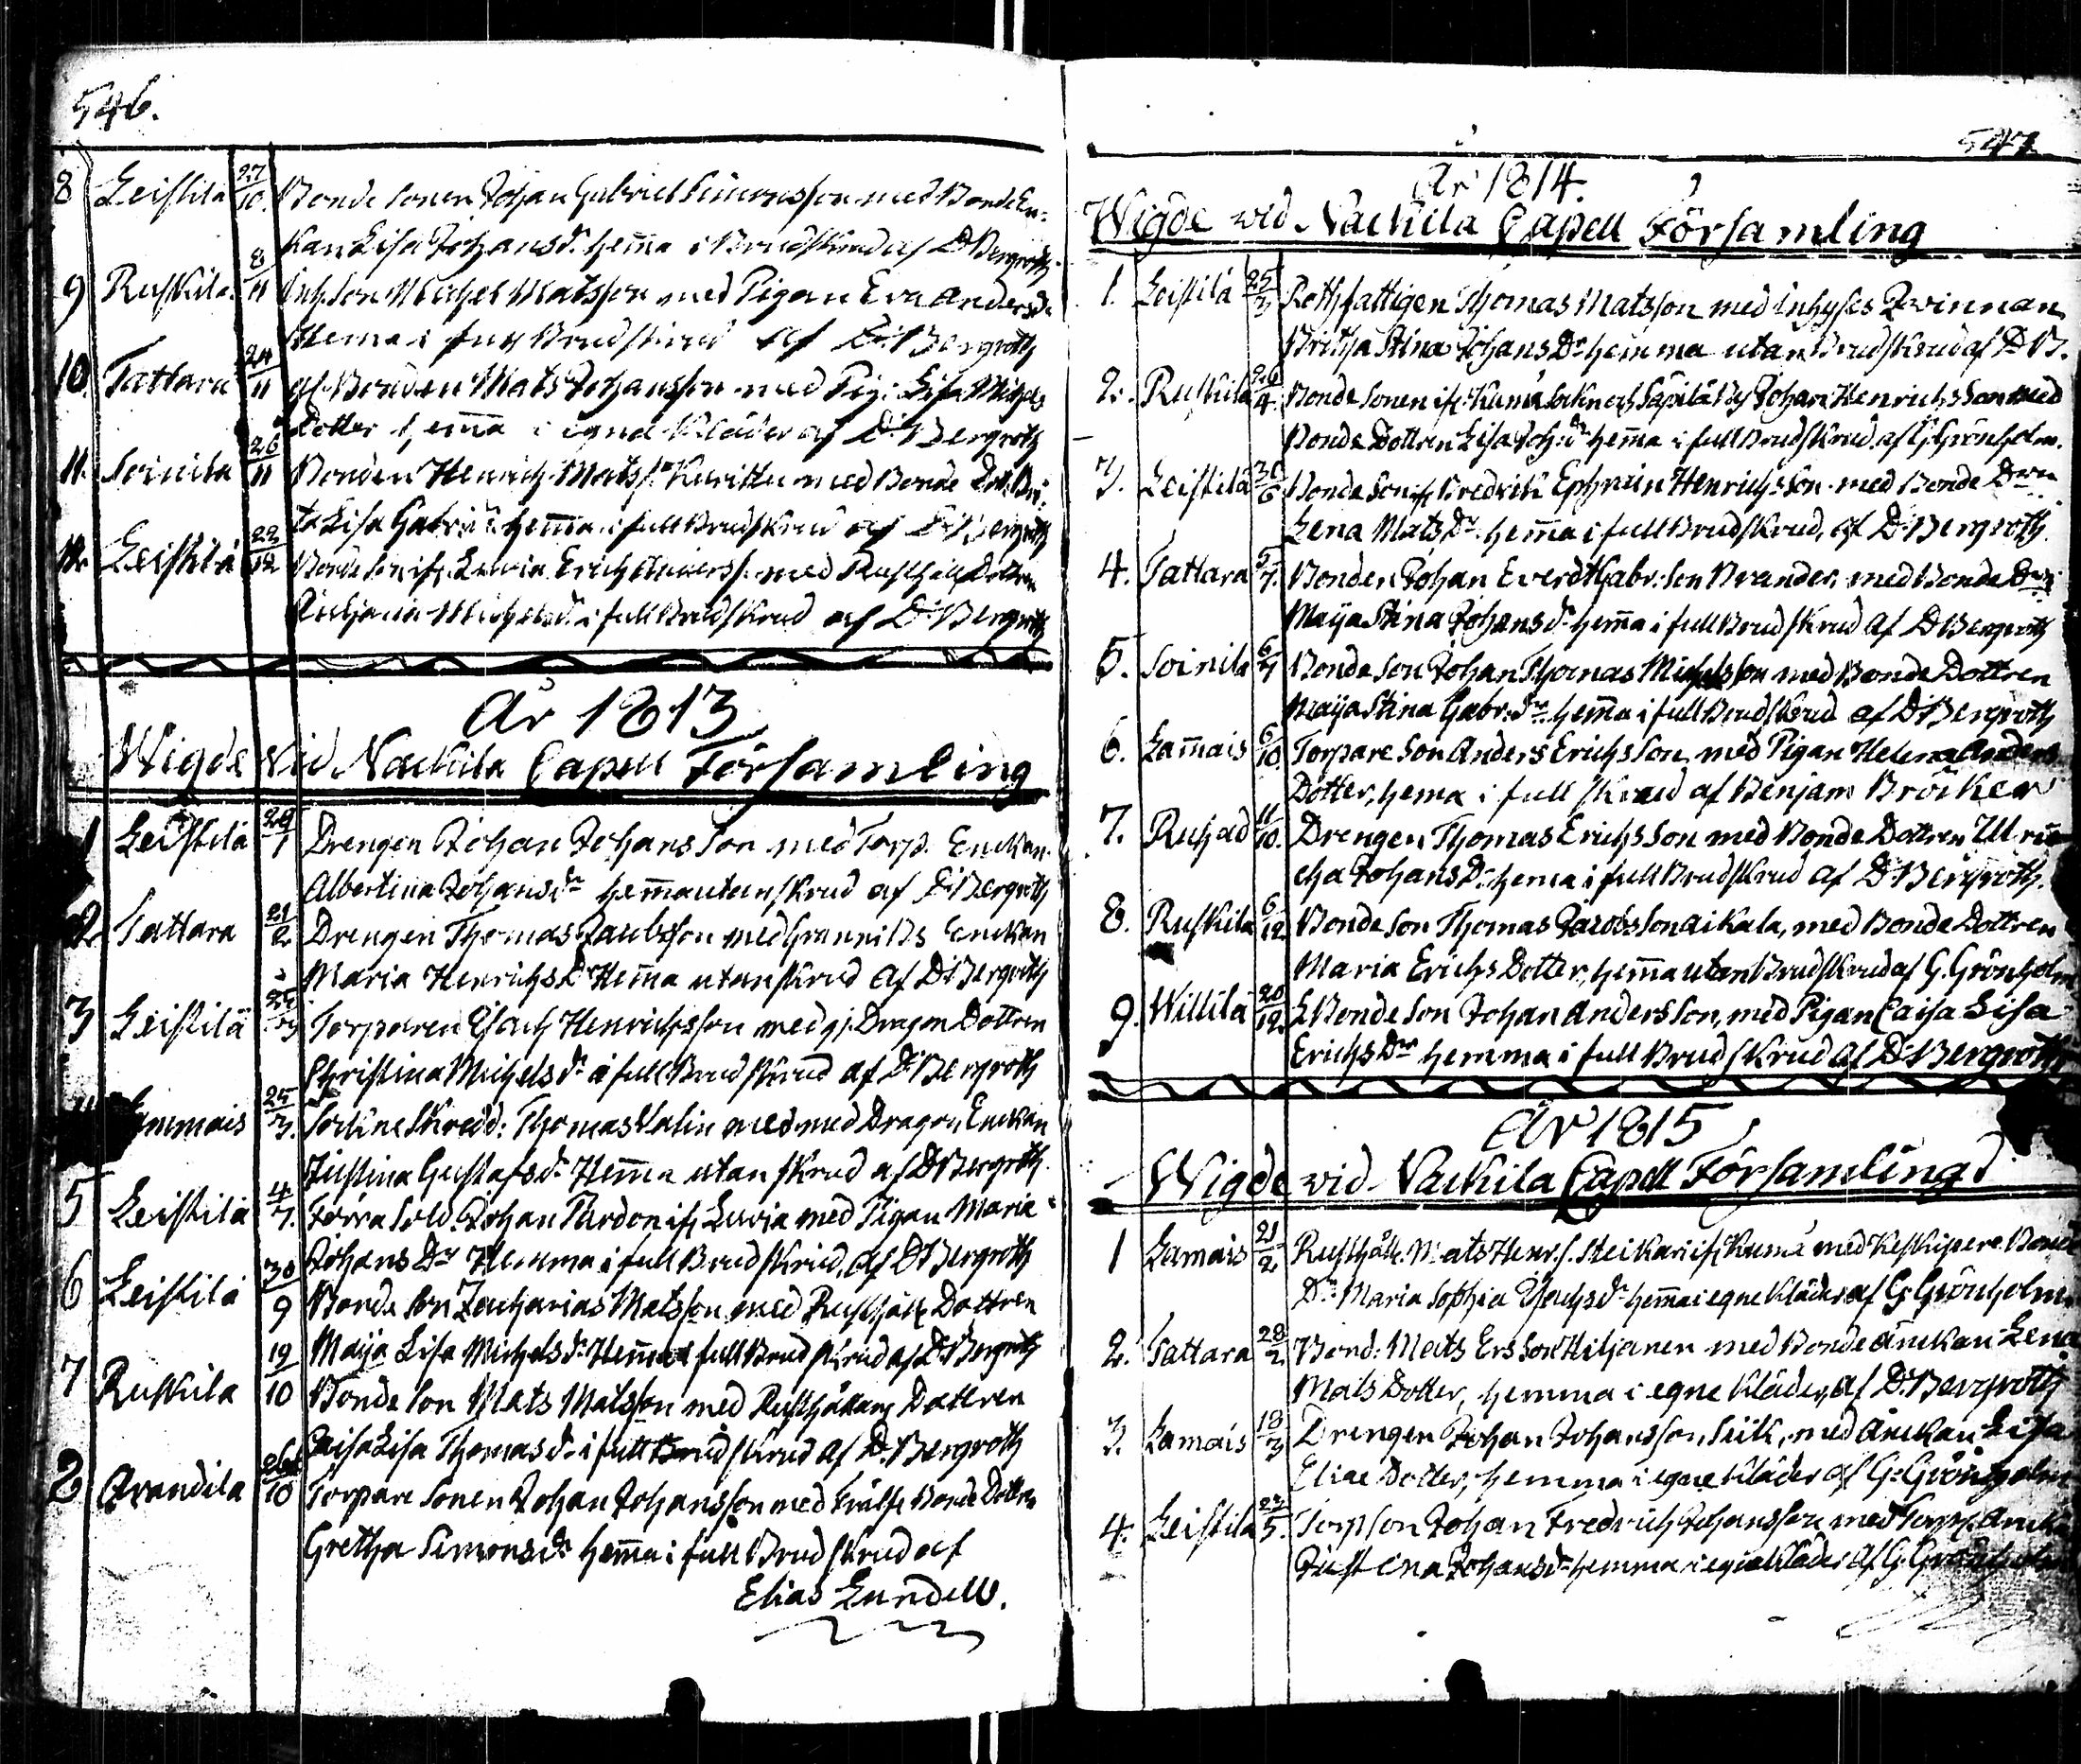 546.
8 Leistilä 27/10. Bonde Sonen Johan Gabriel Simonsson med Bonde En-
kan Lisa Johansdr hem̄a i Brudskrud af D. Bergroth
9 Ruskila 8/11 Inh. Son Michel Matsson med Pigan Eva Andersdr
Hema i full Brudskrud af D. Bergroth
10. Tattara 24/11 Bonden Mats Johansson med Pig: Lisa Michels
Dotter hem̄a i egna Kläder af D. Bergroth
11. Soinila 26/11 Bonden Henrich Mats s. med Bonde Dot. Bri-
ta Lisa Gabr. dr hem̄a i full Brudskrud af D. Bergroth
12. Leistilä 22/12 Bonde Son ifr. Luvia Erich med Rusth. Dottren
Michelsd. i full Brudskrud af D. Bergroth
År 1813
Wigde vid Nackila Capell Församling
1 Leistilä 28/1 Drengen Johan Johans Son med Torp. Enckan
Albertina Johansdr hem̄a utan skrud af D. Bergroth
2. Tattara 21/2 Drengen Thomas Jacobsson med Enckan
Maria Henrichs Dr Hem̄a utan skrud af D. Bergroth
3 Leistilä 25/3 Torparen Henrichsson med Dragon Dottren
Christina Michels dr i full Brudskrud af D. Bergroth
4 Lammais 25/3. Sockne Skredd: Thomas Valin med med Dragon Enckan
Justina Gustafsdr Hem̄a utan skrud af D. Bergroth
5 Leistilä 4/7. Förra Sold. Johan Pardon ifr. Luvia med Pigan Maria
Johans Dr Hemma i full Brudskrud, af D. Bergroth
6 Leistilä 30/9 Bonde Son Zacharias Matsson med Rusthåll. Dottren
Maija Lisa Michels dr Hem̄a i full Brudskrud af D. Bergroth
7 Ruskila 19/10 Bonde Son Mats Matsson med Rusthållare Dottren
Caisa Lisa Thomas dr i full Brudskrud af D. Bergroth
8 Arandila 26/10 Torpare Sonen Johan Johansson med Bonde Dottren
Gretha Simonsdr hem̄a i full Brudskrud af
Elias Lundell.
547
År 1814.
Wigde wid Nackila Capell Församling
1. Leistilä 25/3 Rothfattigen Thomas Matsson med Inhyses Qvinnan
Britha Stina Johans Dr hemma utan Brudskrud af D. B.
2. Ruskila 26/4. Bonde Sonen ifr. Kumå Sockn och By Johan Henrichs Son med
Bonde Dottren Lisa Joh: dr hem̄a i full Brudskrud. af G. Grönholm.
3. Leistilä 30/6 Bonde Son Ephraim Henrichs Son med Bonde Dren
Lena Mats Dr. hem̄a i full Brudskrud, af D. Bergroth.
4. Tattara 5/7. Bonden Johan Everdt Gabr: Son Brander, med Bonde Dren
Maija Stina Johans dr hem̄a i full Brudskrud af D. Bergroth
5. Soinila 6/7 Bonde Son Johan Thomas Michelsson med Bonde Dottren
Maija Stina Gabr: Dr. hem̄a i full Brudskrud af D. Bergroth
6. Lam̄ais 6/10. Torpare Son Anders Erichs Son, med Pigan Helena Anders
Dotter, hema i full skrud af Benjam Bröcker
7. Ruhad 11/10. Drengen Thomas Erichs Son med Bonde Dottren Ulri
cha Johans Dr hema i full Brudskrud af D. Bergroth.
8. Ruskila 6/12 Bonde Son Thomas Jacobs Son Aikala, med Bonde Dottren
Maria Erichs Dotter, hem̄a utan Brudskrud af G. Grönholm
9. Willilä 20/12. Bonde Son Johan Anders Son, med Pigan Caisa Lisa
Erichs Dr hemma i full Brudskrud af D. Bergroth
År 1815
Wigde wid Nackila Capell Församling
1 Lamais 21/2 Rusthåll. Mats Henr. s. Steikari ifr. Kumå med Bonde
Dr. Maria Sophia dr hem̄a i egne Kläder af G. Grönholm
2. Tattara 28/2 Bond: Mats Ers Son Hiljanen med Bonde Änckan Lena
Mats Dotter, hemma i egne Kläder, af D. Bergroth
3. Lamais 18/3 Drengen Johan Johansson Siik, med Änckan Lisa
Eliae Dotter, hemma i egne Kläder af G. Grönholm
4. Leistila 23/5. Torp Son Johan Fredrich Johansson med Torp. Ancka
Justina Johans dr hemma i egna kläder af G. Grönholm